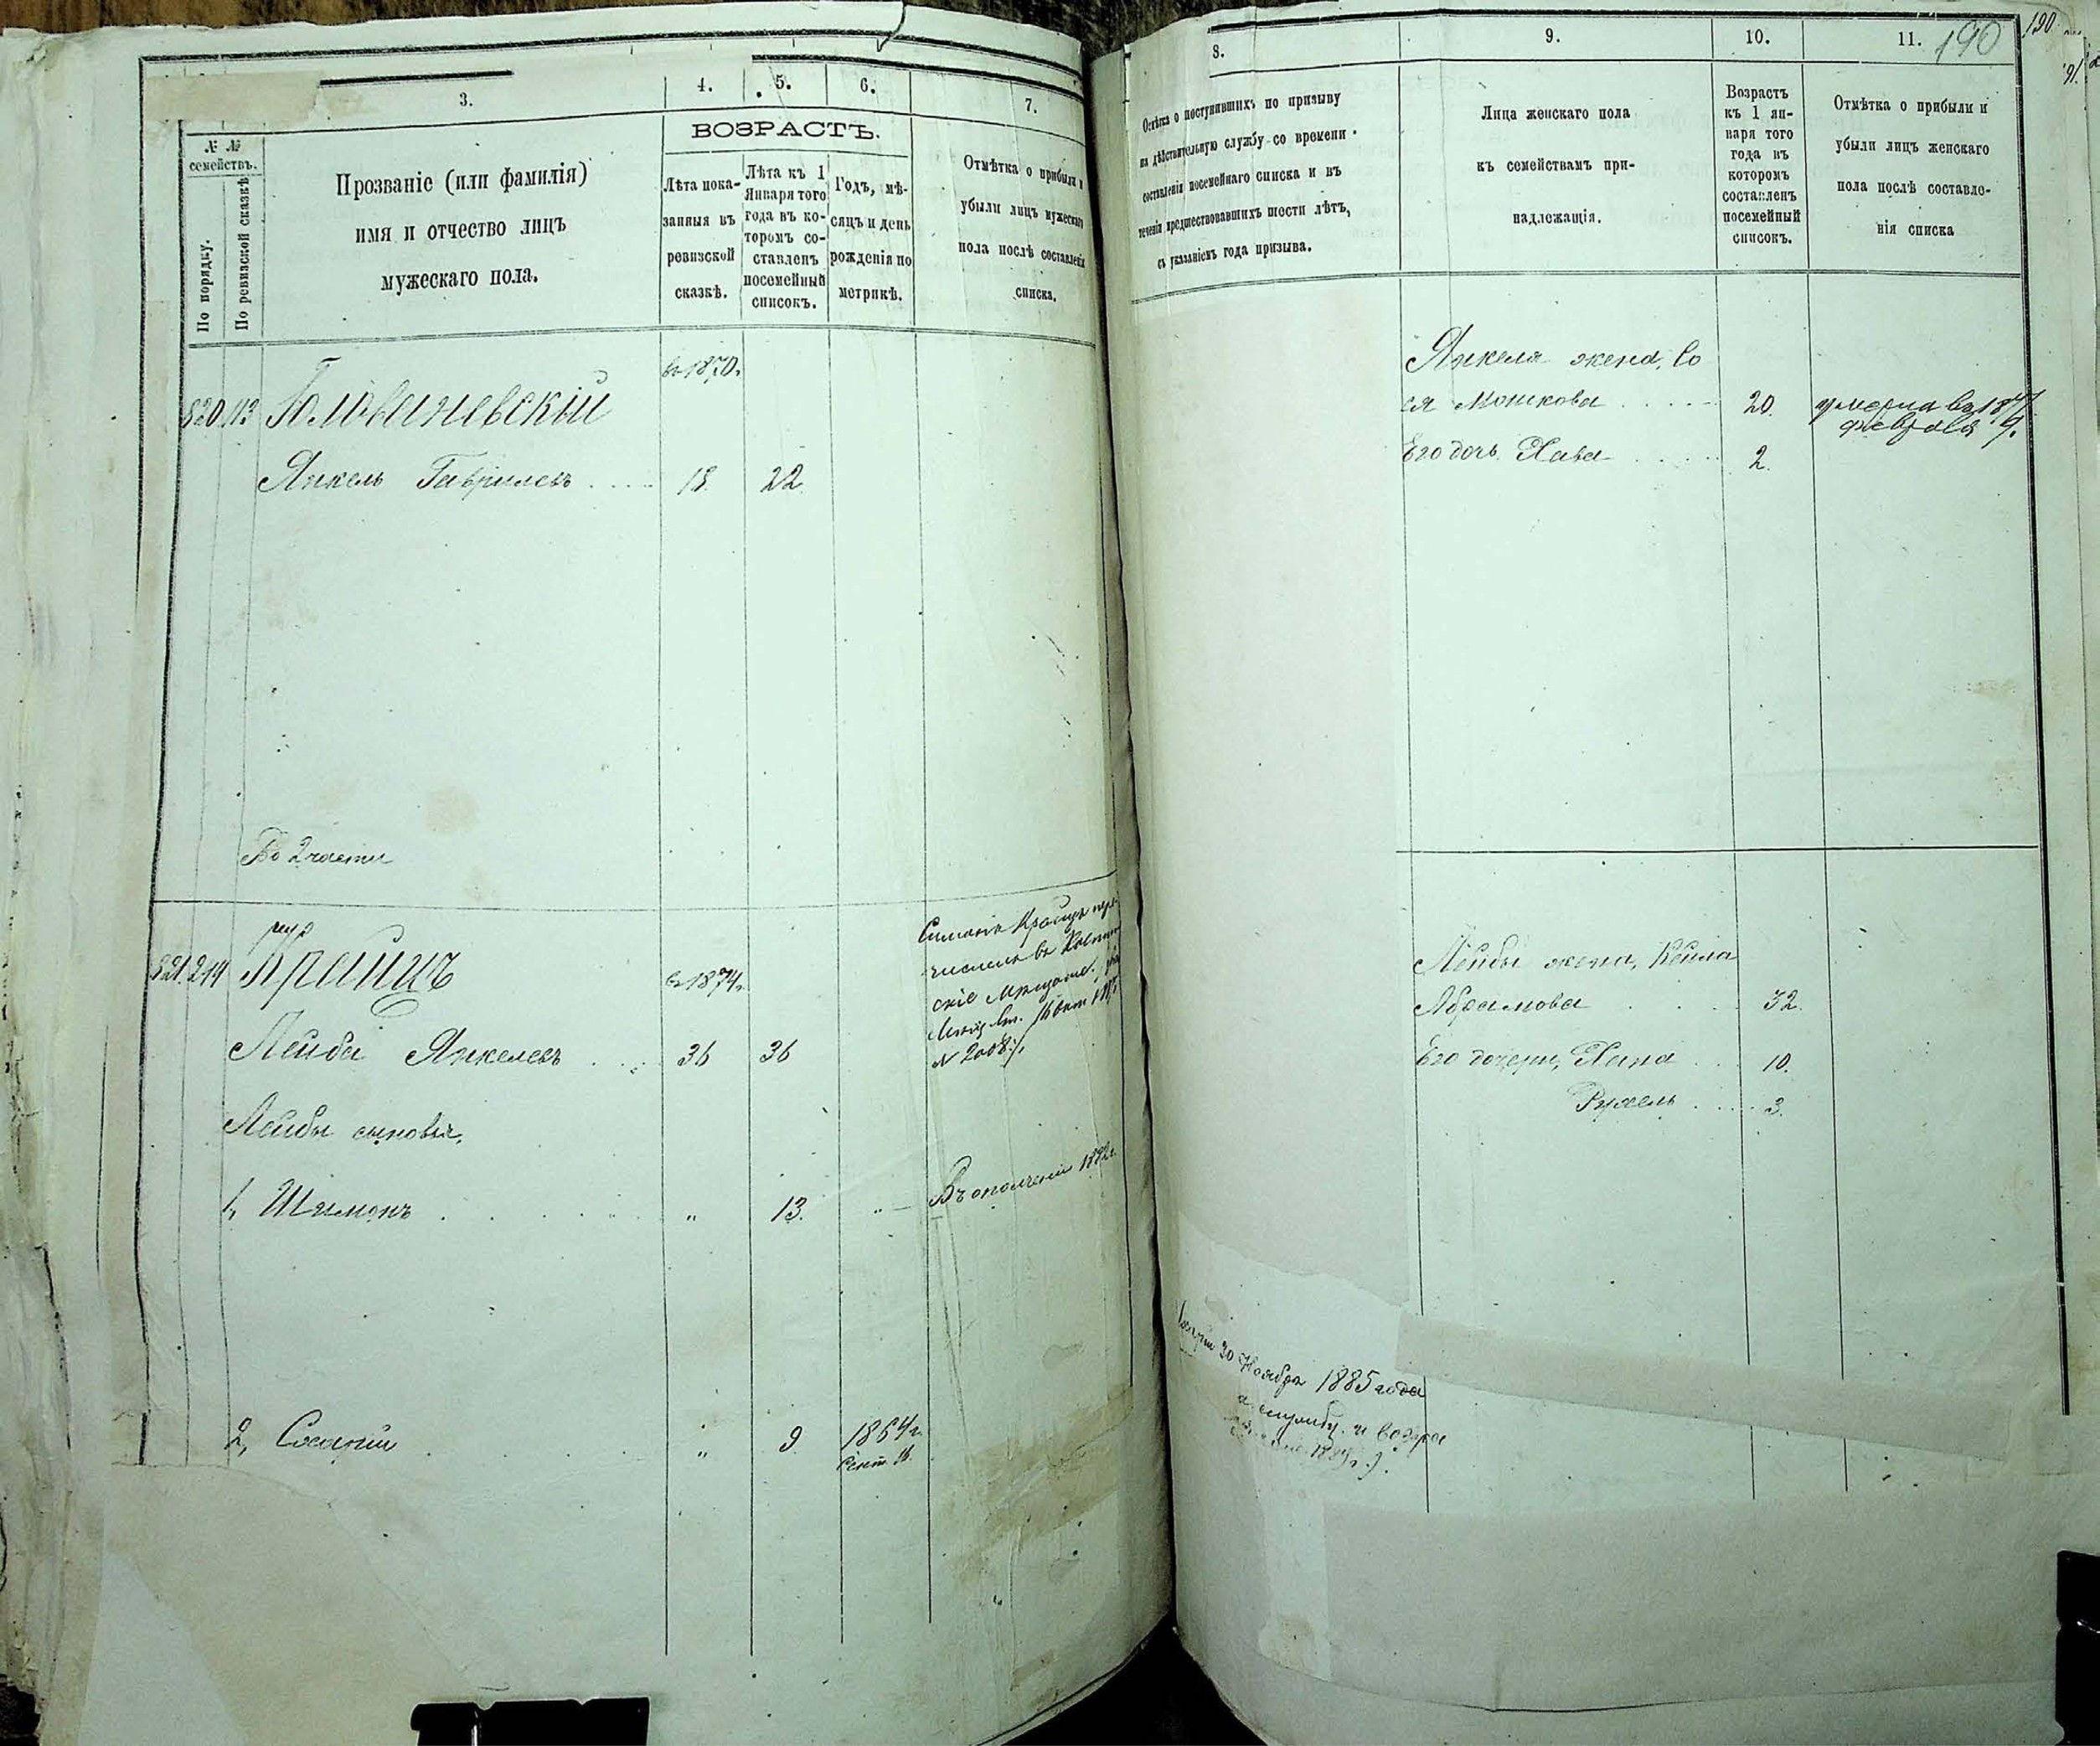 3.
4.
5.
6.
7.
№ №
семействъ.
По порядку.
По ревизской сказкѣ
Прозваніе (или фамилія)
имя и отчество лицъ
мужескаго пола.
ВОЗРАСТЪ.
Лѣта пока-
занныя въ
ревизской
сказкѣ.
Лѣта къ 1
Января того
года въ ко-
торомъ со-
ставленъ
посемейный
списокъ.
Годъ, мѣ-
сяцъ и день
рожденія по
метрикѣ.
Отмѣтка о прибыли и
убыли лицъ мужескаго
пола послѣ составленія
списка.
въ 1870г.
820 113 Голованевскій
Янкель Гавриловъ 18. 22.
Во 2 части
821. 214 Крайцъ въ 1874г.
Лейба Янкелевъ 36 36
№ 2008
Лейбы сыновья,
1, Шимонъ „ 13. „ Въ ополченіи 1882г.
2, „ 9 1864г.
Сент.
8.
9.
10.
11.
190
190
91.
Отмѣтка о поступившихъ по призыву
на дѣйствительную службу со времени
составленія посемейнаго списка и въ
теченіи предшествовавшихъ шести лѣтъ,
съ указаніемъ года призыва.
Лица женскаго пола
къ семействамъ при-
надлежащія.
Возрастъ
къ 1 ян-
варя того
года въ
которомъ
составленъ
посемейный
списокъ.
Отмѣтка о прибыли и
убыли лицъ женскаго
пола послѣ составле-
нія списка
Янкеля жена, Со
ся Мошкова 20. умерла въ
февраля
Его дочь Хава 2.
Лейбы жена, Кейла
Абрамова 32.
Его дочери, Хана 10.
Рухель 3.
30 Ноября 1885 года
службу и возра